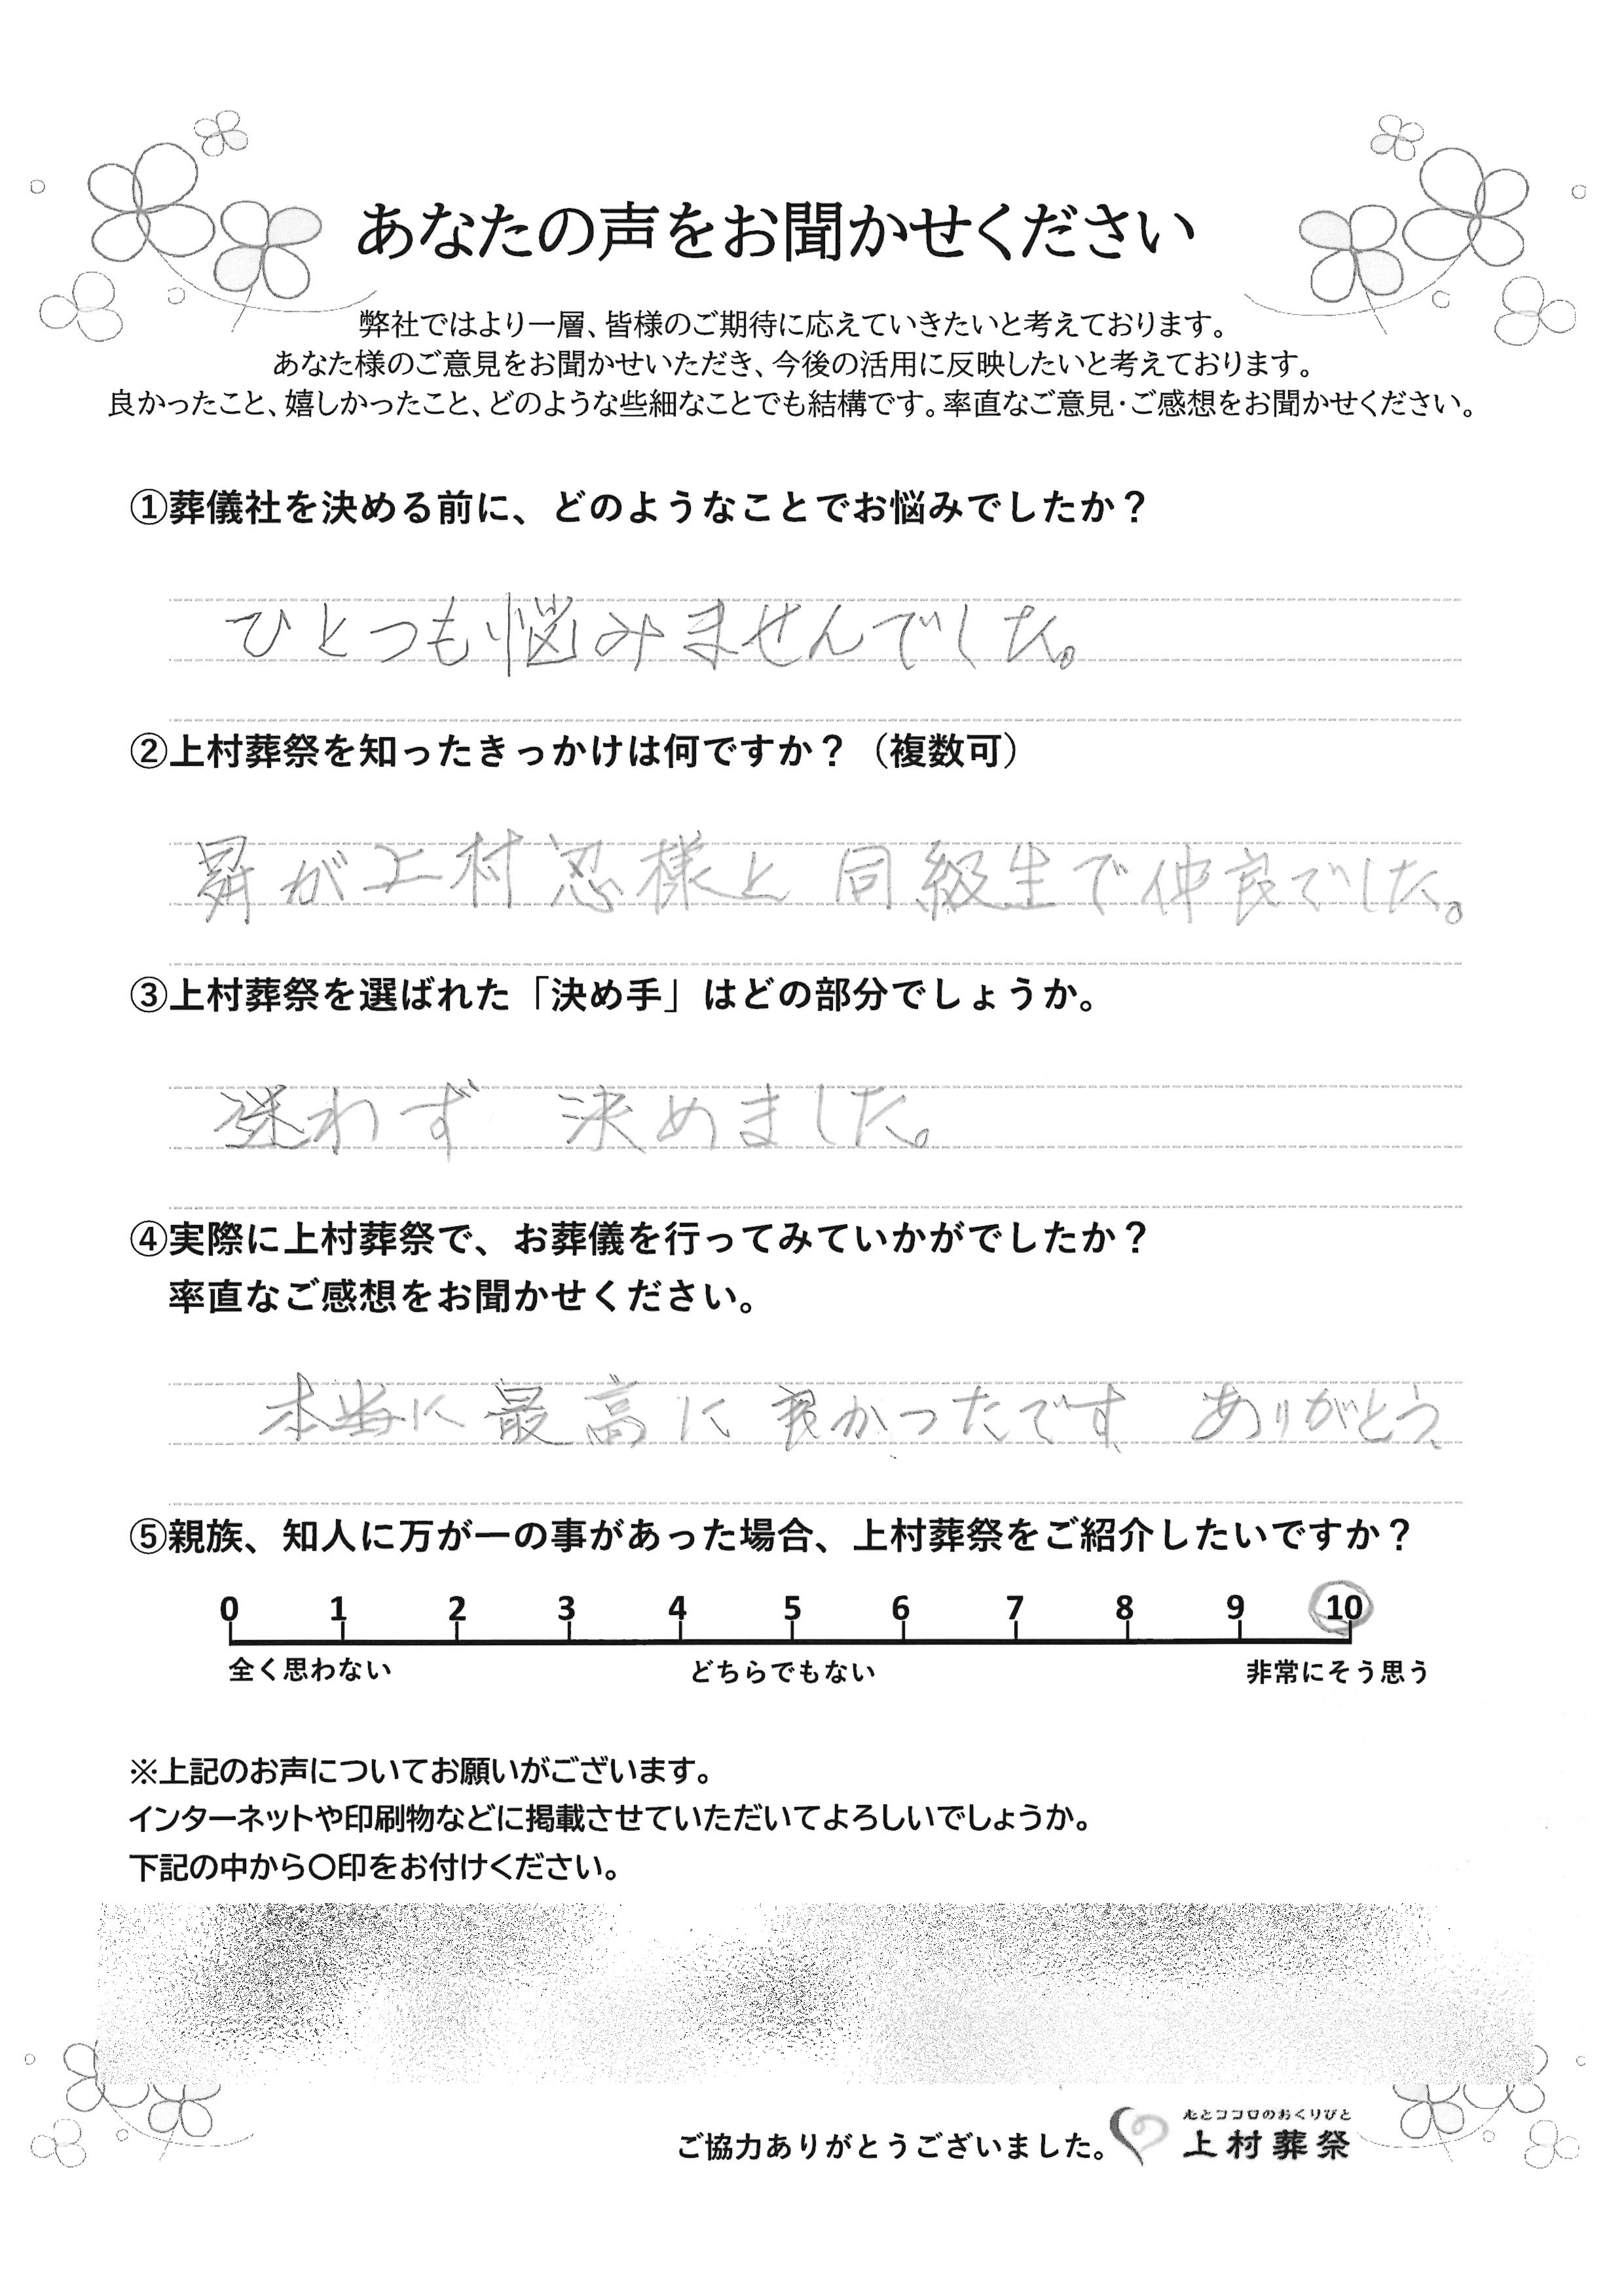 あなたの声をお聞かせください
弊社ではより一層、皆様のご期待に応えていきたいと考えております。
あなた様のご意見をお聞かせいただき、今後の活用に反映したいと考えております。
良かったこと、嬉しかったこと、どのような些細なことでも結構です。率直なご意見・ご感想をお聞かせください。
①葬儀社を決める前に、どのようなことでお悩みでしたか？
ひとつも悩みませんでした。
②上村葬祭を知ったきっかけは何ですか？（複数可）
が上村忍様と同級生で仲良でした。
③上村葬祭を選ばれた「決め手」はどの部分でしょうか。
迷わず 決めました。
④実際に上村葬祭で、お葬儀を行ってみていかがでしたか？
率直なご感想をお聞かせください。
本当に最高に良かったです ありがとう
⑤親族、知人に万が一の事があった場合、上村葬祭をご紹介したいですか？
0 1 2 3 4 5 6 7 8 9 10
全く思わない どちらでもない 非常にそう思う
※上記のお声についてお願いがございます。
インターネットや印刷物などに掲載させていただいてよろしいでしょうか。
下記の中から〇印をお付けください。
ご協力ありがとうございました。
心とココロのおくりびと
上村葬祭